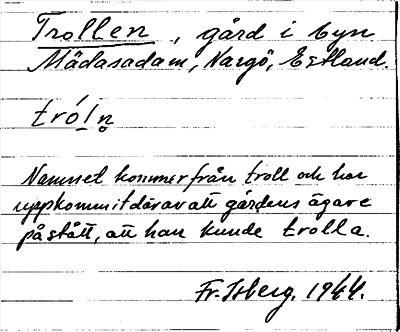 Trollen, gård i byn
Mädasadam, Nargö, Estland.
tró̱ln̥
Namnet kommer från troll och har
uppkommit därav att gårdens ägare
påstått, att han kunde trolla.
Fr. Isberg. 1944.